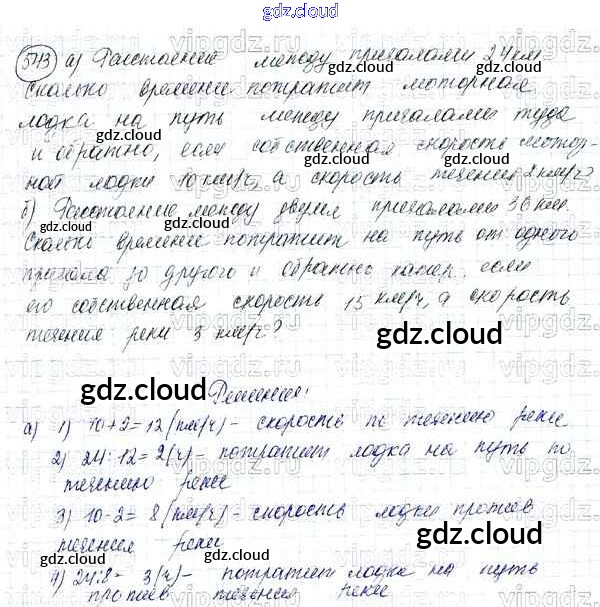 gdz.cloud
543 а) Расстояние между причалами 24 км.
Сколько времени потратит моторная
лодка на путь между причалами туда
и обратно, если собственная скорость мотор-
ной лодки 10 км/ч, а скорость течения 2 км/ч?
б) Расстояние между двумя причалами 36 км.
Сколько времени потратит на путь от одного
причала до другого и обратно катер, если
его собственная скорость 15 км/ч, а скорость
течения реки 3 км/ч?
Решение:
а) 1) 10+2=12 (км/ч) - скорость по течению реки
2) 24:12=2(ч) - потратит лодка на путь по
течению реки
3) 10-2=8 (км/ч) - скорость лодки против
течения реки
4) 24:8= 3(ч) - потратит лодка на путь
против течения реки